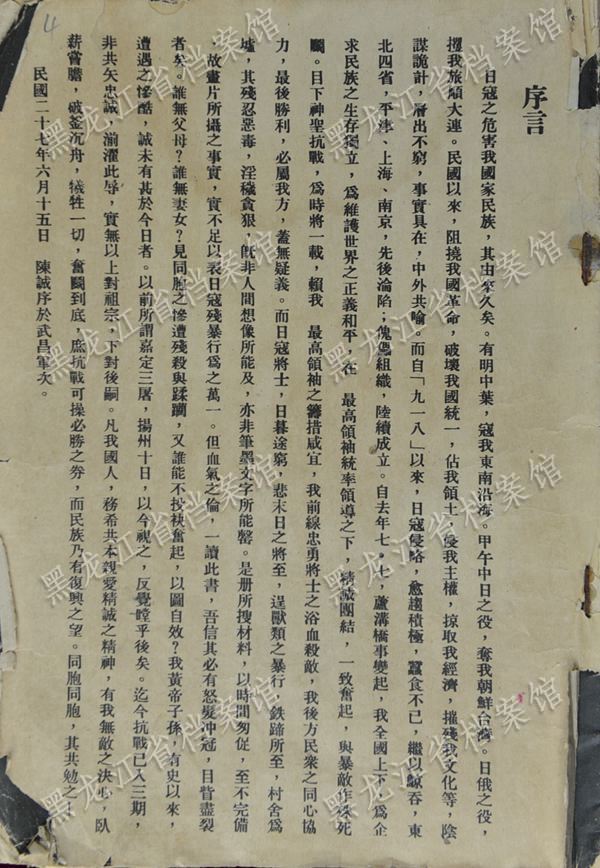 4
序言
日寇之危害我國家民族，其由來久矣。有明中葉，寇我東南沿海。甲午中日之役，奪我朝鮮台灣。日俄之役，
攫我旅順大連。民國以來，阻撓我國革命，破壞我國統一，佔我領土，侵我主權，掠取我經濟，摧殘我文化等，陰
謀詭計，層出不窮，事實具在，中外共喻。而自「九一八」以來，日寇侵略，愈趨積極，蠶食不已，繼以鯨吞，東
北四省，平津、上海、南京，先後淪陷；傀儡組織，陸續成立。自去年七・七，蘆溝橋事變起，我全國上下，爲企
求民族之生存獨立，爲維護世界之正義和平，在 最高領袖統率領導之下，精誠團結，一致奮起，與暴敵作殊死
鬭。目下神聖抗戰，爲時將一載，賴我 最高領袖之籌措咸宜，我前線忠勇將士之浴血殺敵，我後方民衆之同心協
力，最後勝利，必屬我方，蓋無疑義。而日寇將士，日暮途窮，悲末日之將至，逞獸類之暴行，鉄蹄所至，村舍爲
墟，其殘忍惡毒，淫穢貪狠，旣非人間想像所能及，亦非筆墨文字所能罄。是册所搜材料，以時間匆促，至不完備
，故畫片所攝之事實，實不足以表日寇殘暴行爲之萬一。但血氣之倫，一讀此書，吾信其必有怒髮冲冠，目眥盡裂
者矣。誰無父母？誰無妻女？見同胞之慘遭殘殺與蹂躪，又誰能不投袂奮起，以圖自效？我黃帝子孫，有史以來，
遭遇之慘酷，誠未有甚於今日者。以前所謂嘉定三屠，揚州十日，以今視之，反覺瞠乎後矣。迄今抗戰已入三期，
非共矢忠誠，湔濯此辱，實無以上對祖宗，下對後嗣。凡我國人，務希共本親愛精誠之精神，有我無敵之決心，臥
薪嘗膽，破釜沉舟，犠牲一切，奮鬭到底，庶抗戰可操必勝之券，而民族乃有復興之望。同胞同胞，其共勉之！
民國二十七年六月十五日 陳誠序於武昌軍次。
黑龙江省档案馆
黑龙江省档案馆
黑龙江省档案馆
黑龙江省档案馆
黑龙江省档案馆
黑龙江省档案馆